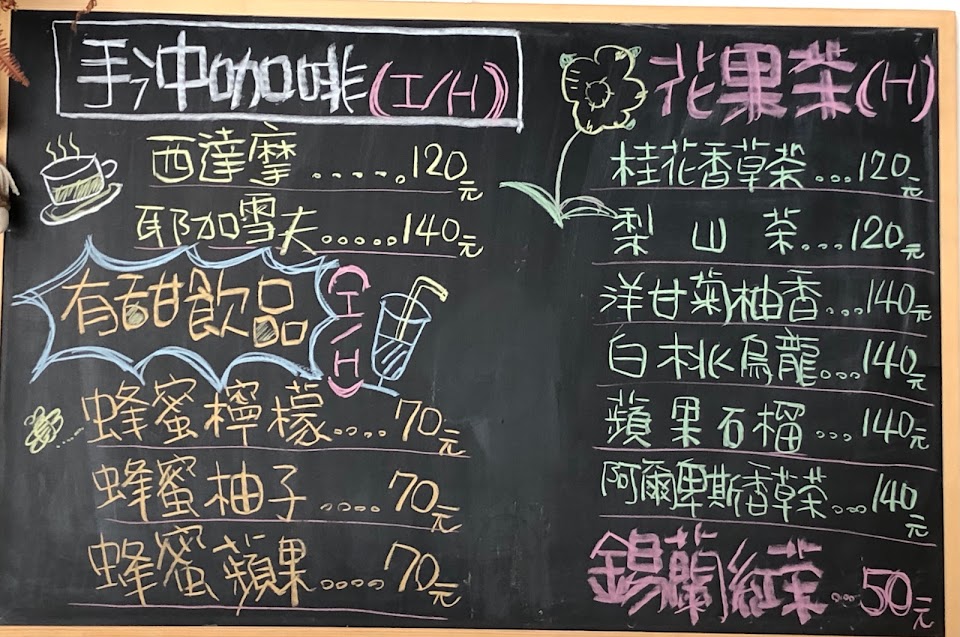 手冲咖啡(I/H)
西達摩.....120元
耶加雪夫.....140元
有甜飲品(I/H)
蜂蜜檸檬....70元
蜂蜜柚子....70元
蜂蜜蘋果....70元
花果茶(H)
桂花香草茶...120元
梨山茶...120元
洋甘菊柚香...140元
白桃烏龍...140元
蘋果石榴...140元
阿爾卑斯香草茶...140元
錫蘭紅茶...50元